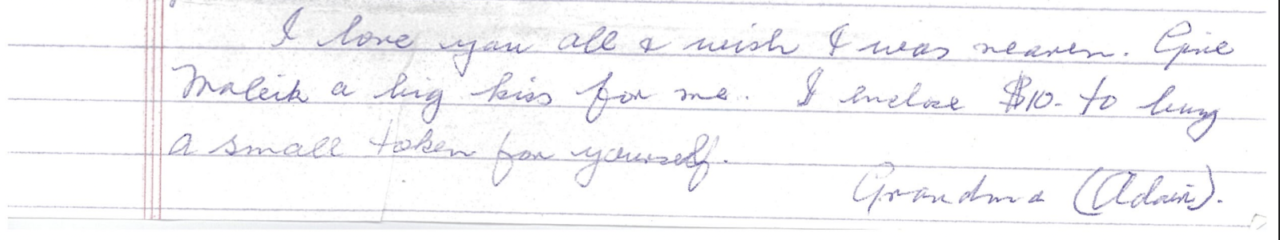 I love you all & wish I was nearer. Give
Maleik a big kiss for me. I enclose $10- to buy
a small token for yourself.
Grandma (Adair).